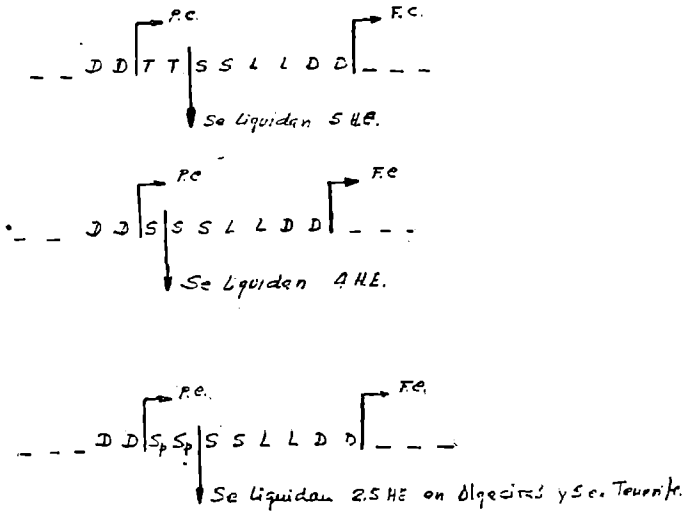 P.C. F.C.
_ _ D D T T S S L L D D _ _ _
Se liquidan 5 HE.
P.C F.C
_ _ D D S S S L L D D _ _ _
Se liquidan 4 HE.
P.C. F.C.
_ _ _ D D Sp Sp S S L L D D _ _ _
Se liquidan 2.5 HE en Algeciras y S.C. Tenerife.